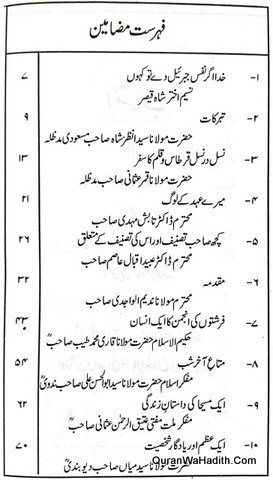 فہرست مضامین
۱- خدا اگر نفس جبرئیل دے تو کہوں ۷
نسیم اختر شاہ قیصر
۲- تبرکات ۹
حضرت مولانا سید انظر شاہ صاحب مسعودی مدظلہ
۳- نسل در نسل قرطاس و قلم کا سفر ۱۳
حضرت مولانا قمر عثمانی صاحب مدظلہ
۴- میرے عہد کے لوگ ۲۱
محترم ڈاکٹر تابش مہدی صاحب
۵- کچھ صاحب تصنیف اور اس کی تصنیف کے متعلق ۲۶
محترم ڈاکٹر عبید اقبال عاصم صاحب
۶- مقدمہ ۳۲
محترم مولانا ندیم الواجدی صاحب
۷- فرشتوں کی انجمن کا ایک انسان ۴۳
حکیم الاسلام حضرت مولانا قاری محمد طیب صاحبؒ
۸- متاع آخر شب ۵۴
مفکر اسلام حضرت مولانا سید ابوالحسن علی صاحب ندویؒ
۹- ایک مسیحا کی داستانِ زندگی ۶۲
مفکر ملت مفتی عتیق الرحمٰن عثمانی صاحبؒ
۱۰- ایک عظیم اور یادگار شخصیت ۷۰
حضرت مولانا سید میاں صاحب دیوبندیؒ
QuranWaHadith.Com